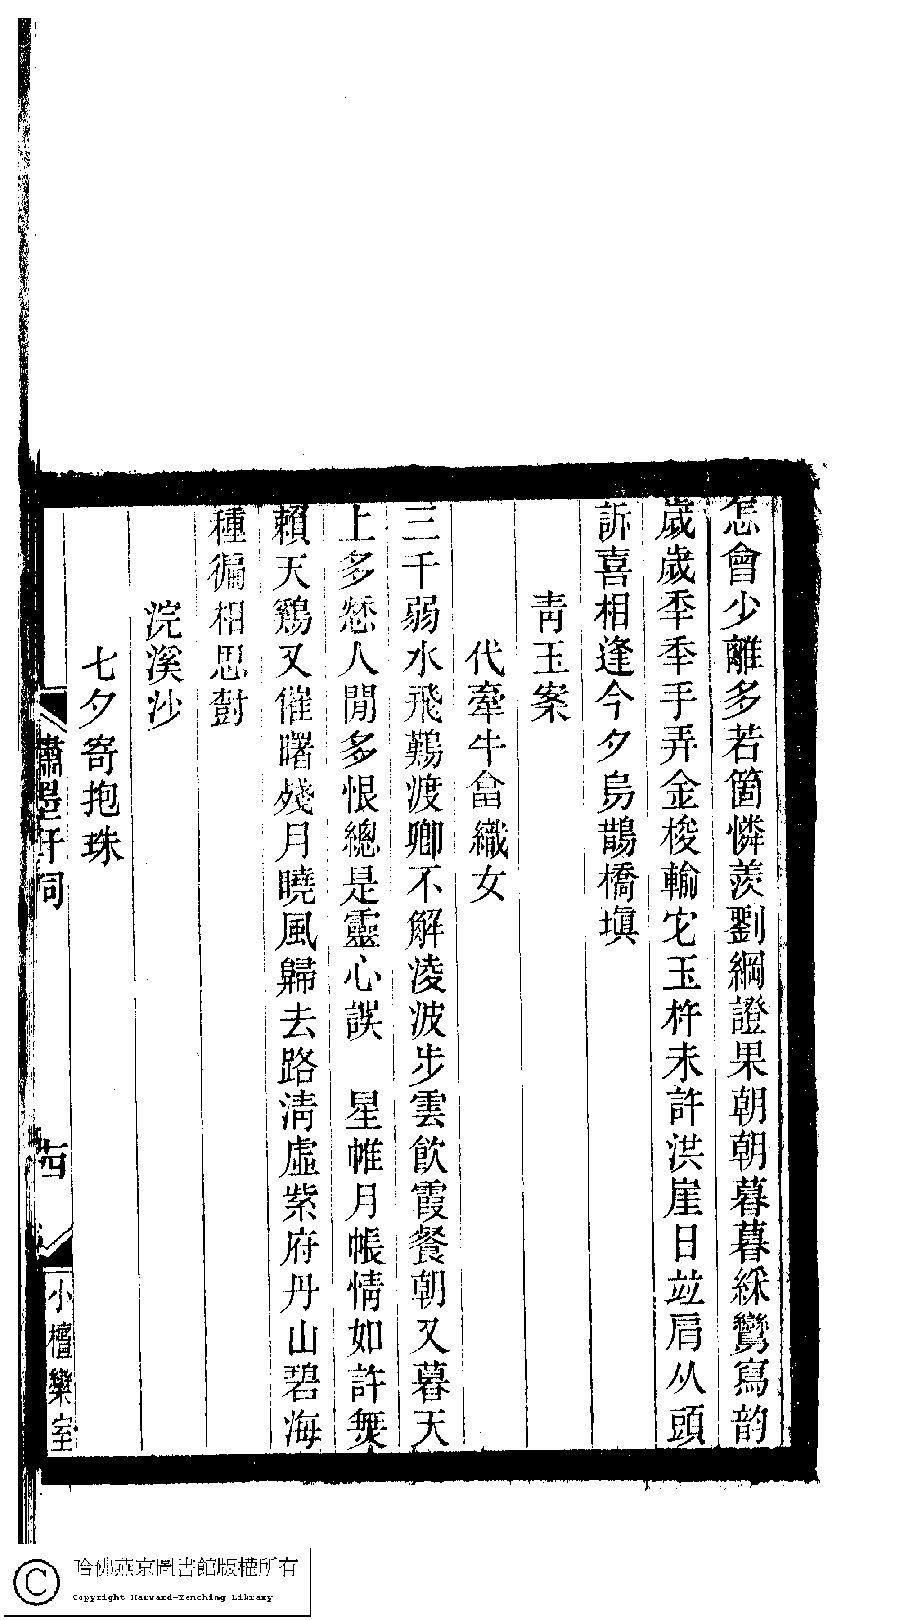 怎會少離多若箇憐羨劉綱證果朝朝暮暮綵鸞寫韵
歲歲秊秊手弄金梭輸它玉杵未許洪崖日竝肩从頭
訴喜相逢今夕烏鵲橋塡
青玉案
代牽牛畣織女
三千弱水飛鷄渡卿不解凌波步雲飮霞餐朝又暮天
上多愁人閒多恨總是靈心誤　星帷月帳情如許無
賴天鷄又催曙殘月曉風歸去路淸虛紫府丹山碧海
種徧相思對
浣溪沙
七夕寄抱珠
小檀欒室
哈佛燕京圖書館版權所有
Copyright Harvard-Yenching Library